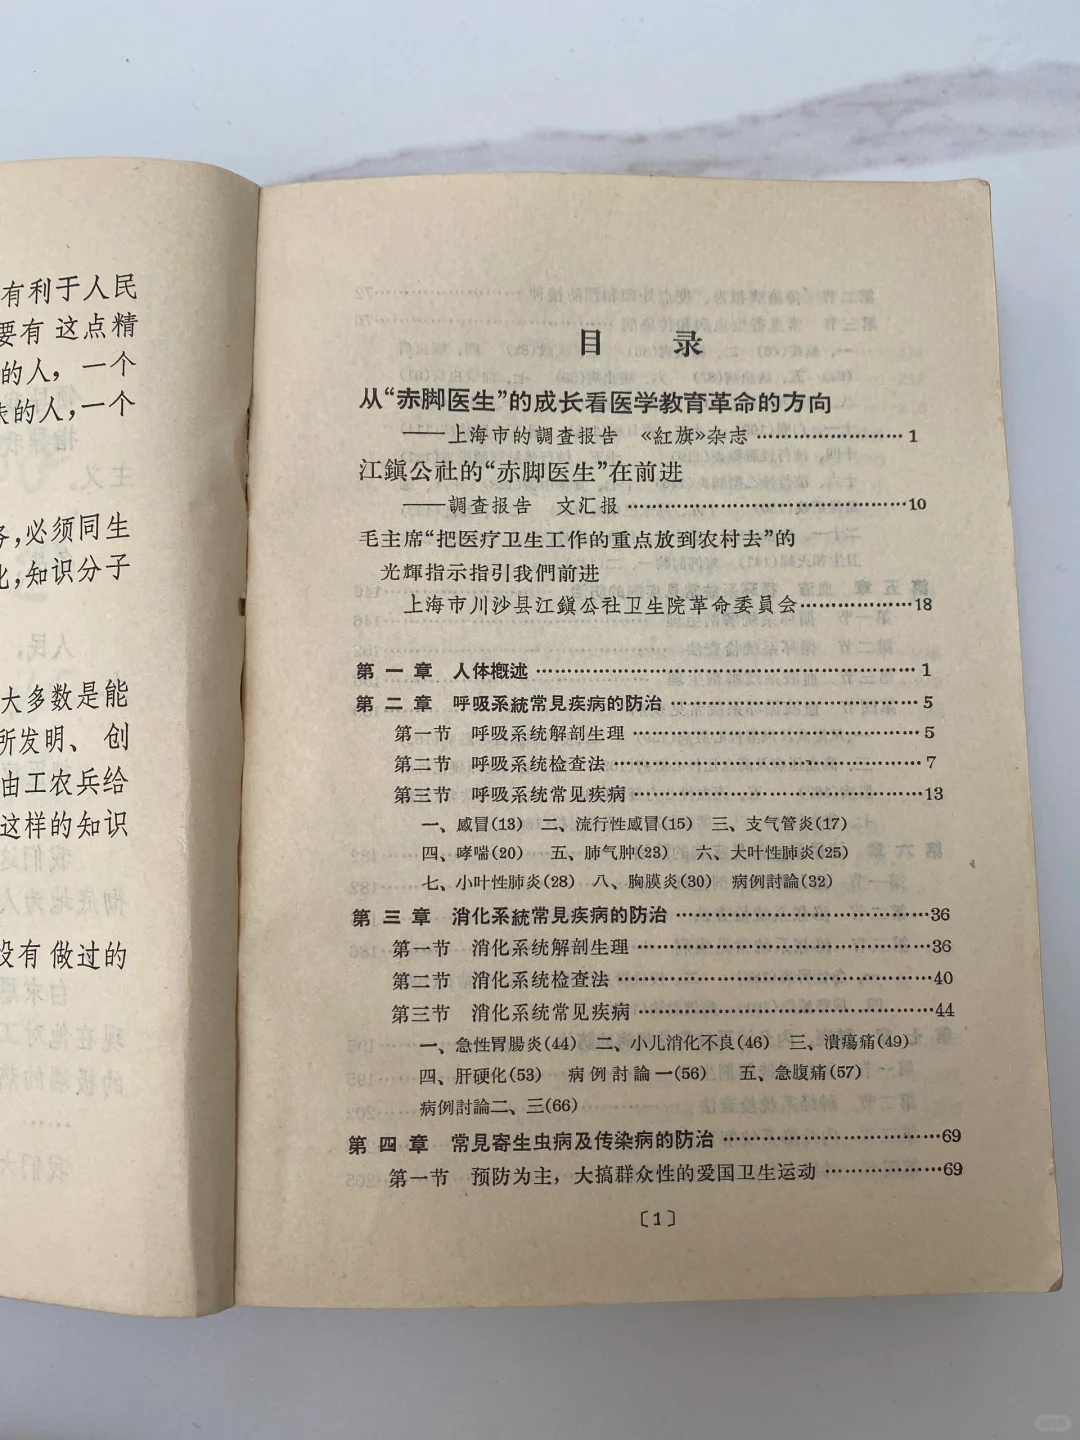 有利于人民
要有 这点精
的人，一个
的人，一个
，必须同生
，知识分子
大多数是能
所发明、 创
由工农兵给
这样的知识
没有 做过的
目 录
从“赤脚医生”的成长看医学教育革命的方向
——上海市的調查报告 《紅旗》杂志……………………1
江鎭公社的“赤脚医生”在前进
——調查报告 文汇报……………………………………10
毛主席“把医疗卫生工作的重点放到农村去”的
光輝指示指引我們前进
上海市川沙县江鎭公社卫生院革命委員会………………18
第 一 章 人体槪述……………………………………………………1
第 二 章 呼吸系統常見疾病的防治…………………………………5
第一节 呼吸系统解剖生理………………………………………5
第二节 呼吸系统检查法…………………………………………7
第三节 呼吸系统常见疾病………………………………………13
一、感冒(13) 二、流行性感冒(15) 三、支气管炎(17)
四、哮喘(20) 五、肺气肿(23) 六、大叶性肺炎(25)
七、小叶性肺炎(28) 八、胸膜炎(30) 病例討論(32)
第 三 章 消化系統常見疾病的防治…………………………………36
第一节 消化系统解剖生理………………………………………36
第二节 消化系统检查法…………………………………………40
第三节 消化系统常见疾病………………………………………44
一、急性胃腸炎(44) 二、小儿消化不良(46) 三、潰瘍痛(49)
四、肝硬化(53) 病例討論一(56) 五、急腹痛(57)
病例討論二、三(66)
第 四 章 常見寄生虫病及传染病的防治……………………………69
第一节 预防为主，大搞群众性的爱国卫生运动………………69
〔1〕